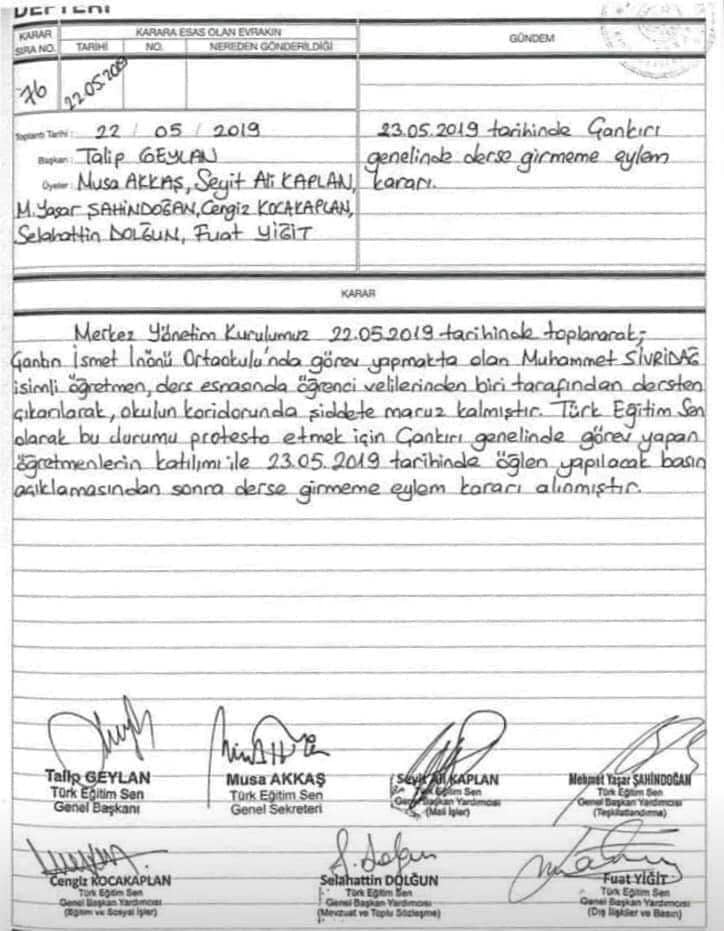 DEFTERİ
KARAR SIRA NO.
KARARA ESAS OLAN EVRAKIN
TARİHİ NO. NEREDEN GÖNDERİLDİĞİ
GÜNDEM
76
22.05.2019
Toplantı Tarihi : 22 / 05 / 2019
Başkan : Talip GEYLAN
Üyeler : Musa AKKAŞ, Seyit Ali KAPLAN,
M.Yaşar ŞAHİNDOĞAN, Cengiz KOCAKAPLAN,
Selahattin DOLĞUN, Fuat YİĞİT
23.05.2019 tarihinde Çankırı
genelinde derse girmeme eylem
kararı.
KARAR
Merkez Yönetim Kurulumuz 22.05.2019 tarihinde toplanarak;
Çankırı İsmet İnönü Ortaokulu'nda görev yapmakta olan Muhammet SİVRİDAĞ
isimli öğretmen, ders esnasında öğrenci velilerinden biri tarafından dersten
çıkarılarak, okulun koridorunda şiddete maruz kalmıştır. Türk Eğitim Sen
olarak bu durumu protesto etmek için Çankırı genelinde görev yapan
öğretmenlerin katılımı ile 23.05.2019 tarihinde öğlen yapılacak basın
açıklamasından sonra derse girmeme eylem kararı alınmıştır.
Talip GEYLAN
Türk Eğitim Sen
Genel Başkanı
Musa AKKAŞ
Türk Eğitim Sen
Genel Sekreteri
Seyit Ali KAPLAN
Türk Eğitim Sen
Genel Başkan Yardımcısı
(Mali İşler)
Mehmet Yaşar ŞAHİNDOĞAN
Türk Eğitim Sen
Genel Başkan Yardımcısı
(Teşkilatlandırma)
Cengiz KOCAKAPLAN
Türk Eğitim Sen
Genel Başkan Yardımcısı
(Eğitim ve Sosyal İşler)
Selahattin DOLĞUN
Türk Eğitim Sen
Genel Başkan Yardımcısı
(Mevzuat ve Toplu Sözleşme)
Fuat YİĞİT
Türk Eğitim Sen
Genel Başkan Yardımcısı
(Dış İlişkiler ve Basın)